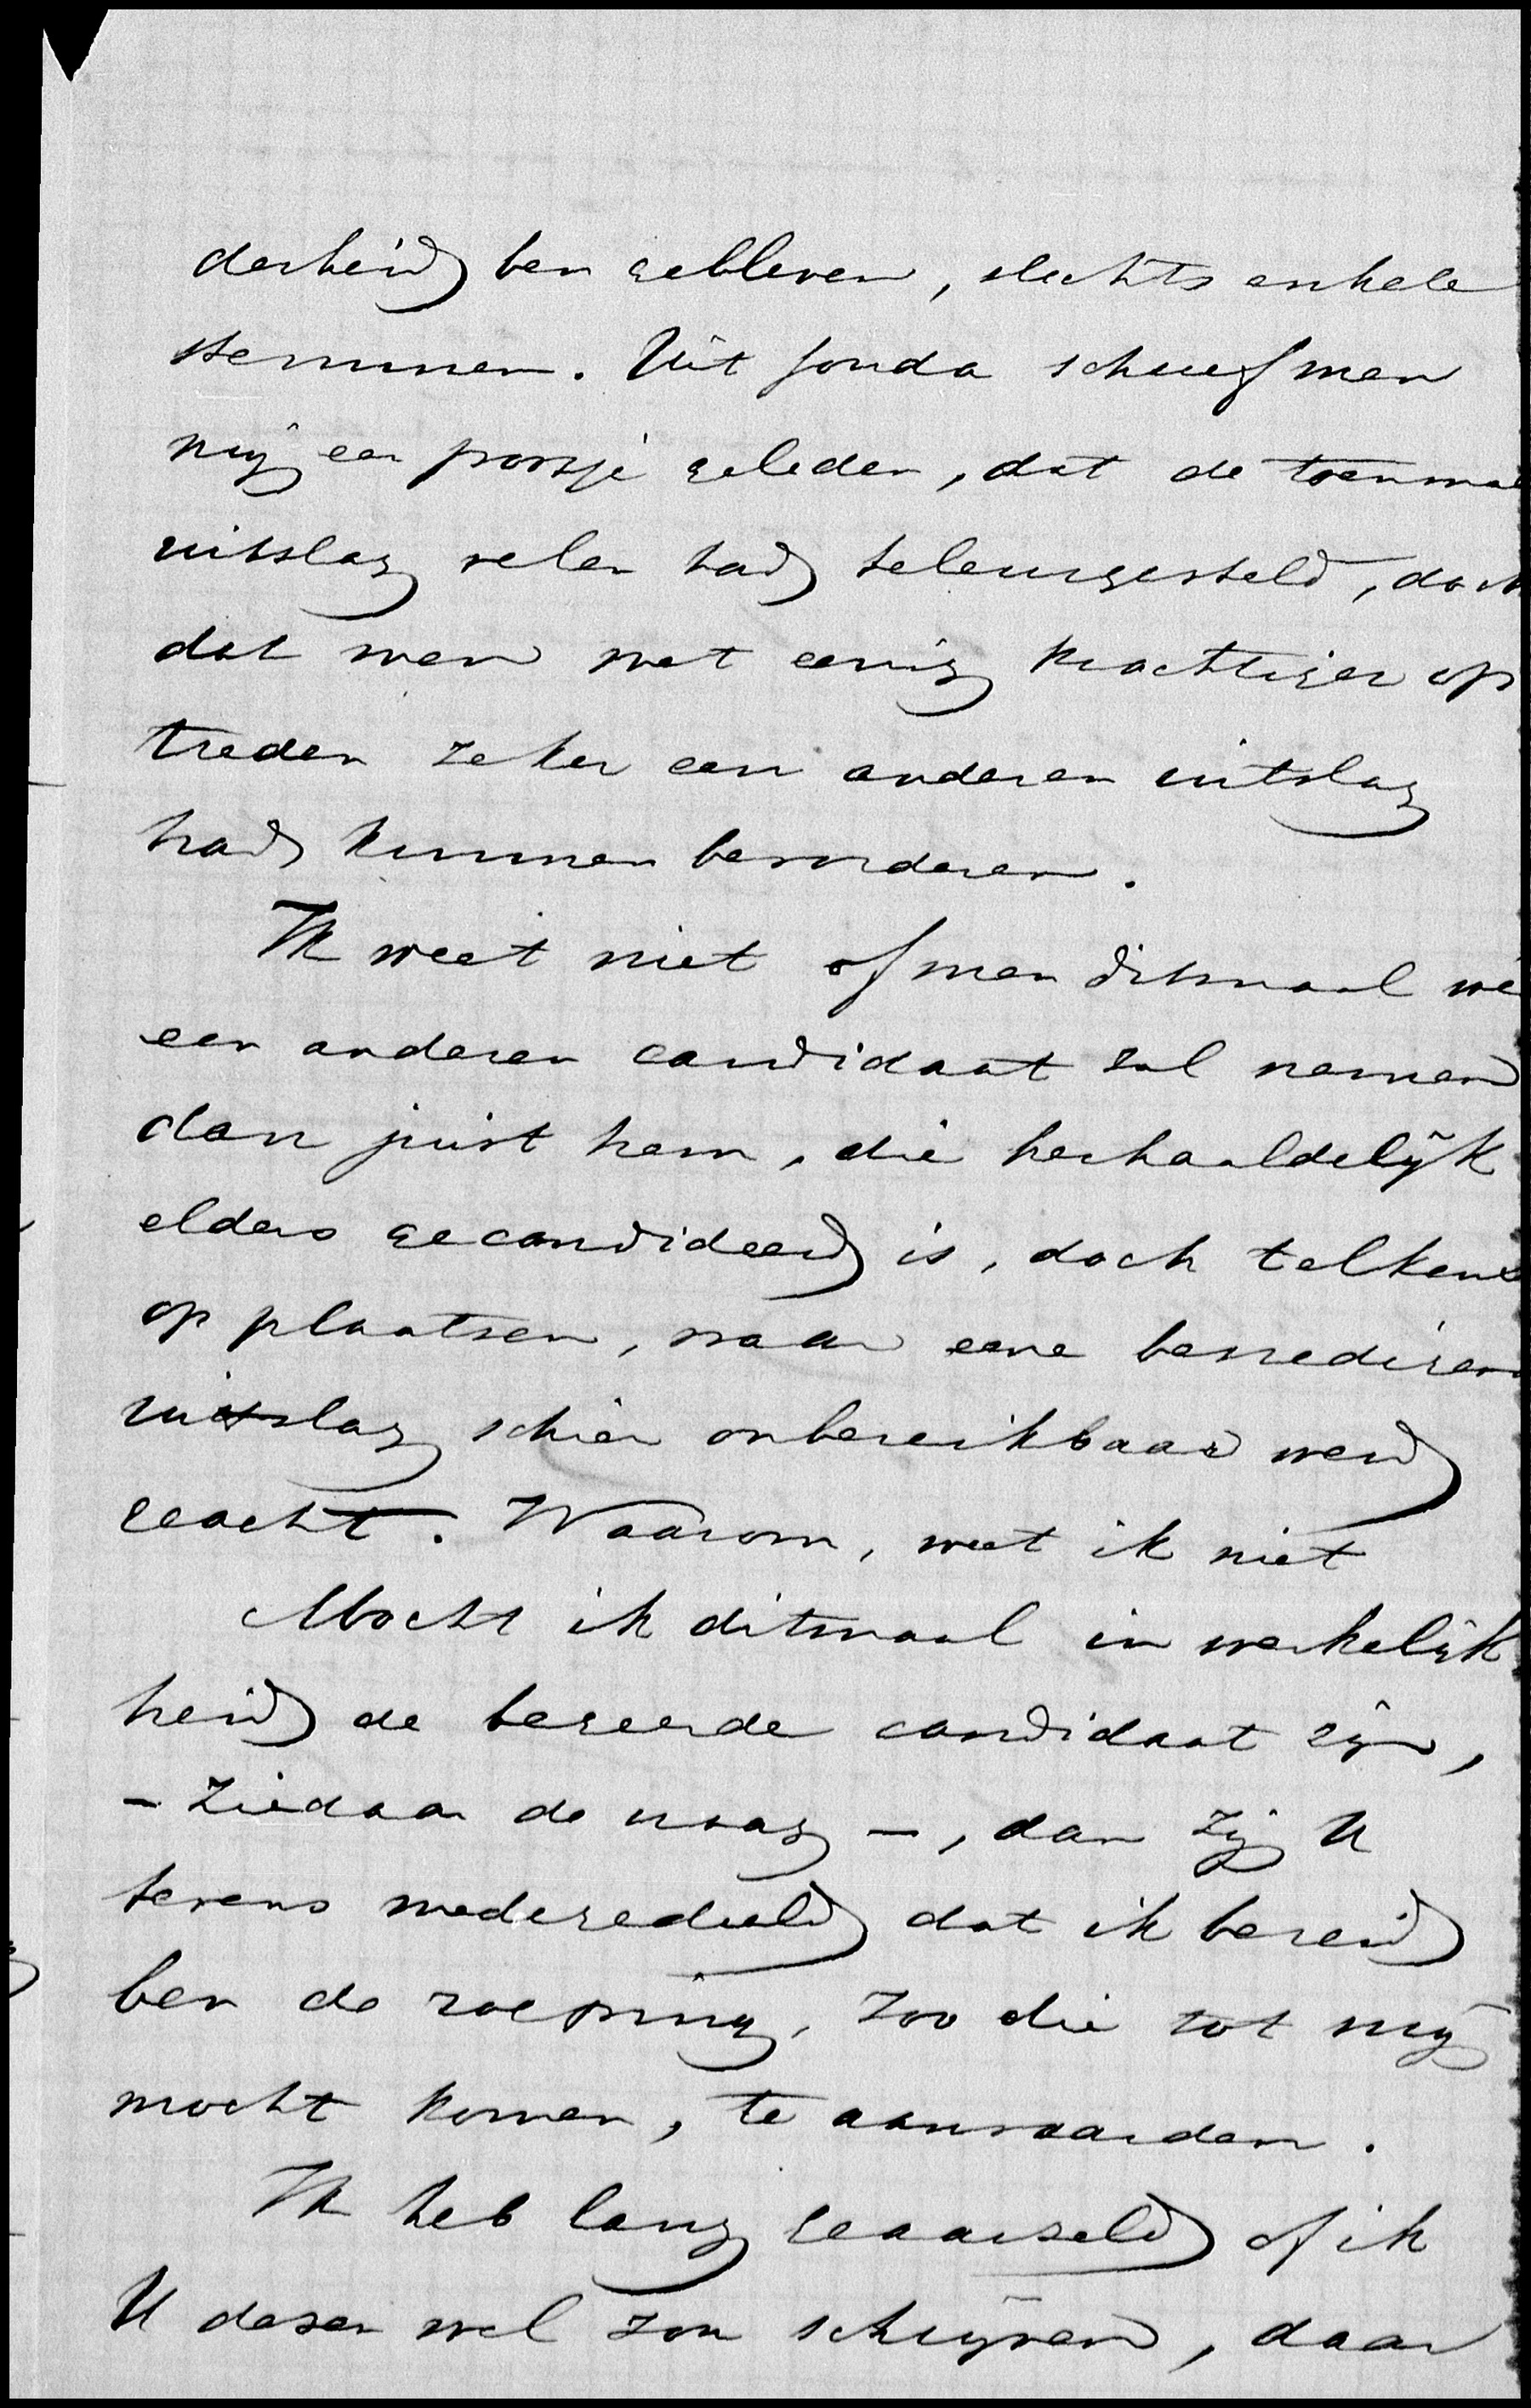 derheid ben gebleven, slechts enkele
stemmen. Uit Gouda schreef men
mij een poosje geleden, dat de toenma
uitslag velen had teleurgesteld, doch
dat men met eenig krachtiger op
treden zeker een anderen uitslag
had kunnen bevorderen.
Ik weet niet of men ditmaal we
een anderen candidaat zal nemen
dan juist hem, die herhaaldelijk
elders gecandideerd is, doch telkens
op plaatsen, waar eene bevredigen
uitslag schier onbereikbaar werd
geacht. Waarom, weet ik niet
Mocht ik ditmaal in werkelijk
heid de begeerde candidaat zijn,
- Ziedaar de vraag -, dan zij U
tevens medegedeeld dat ik bereid
ben de roeping, zoo die tot mij
mocht komen, te aanvaarden.
Ik heb lang geaarzeld of ik
U dezen wel zou schrijven, daar